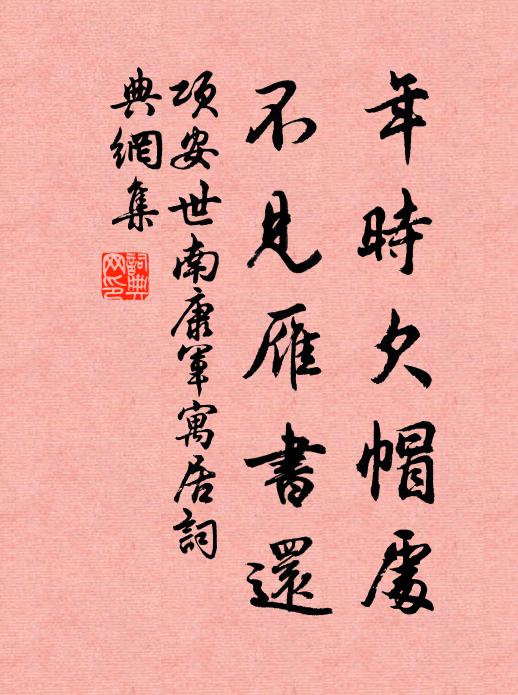 年時欠帽處
不見雁書還
項安世南康軍寓居詞
典網集
詞典
网印